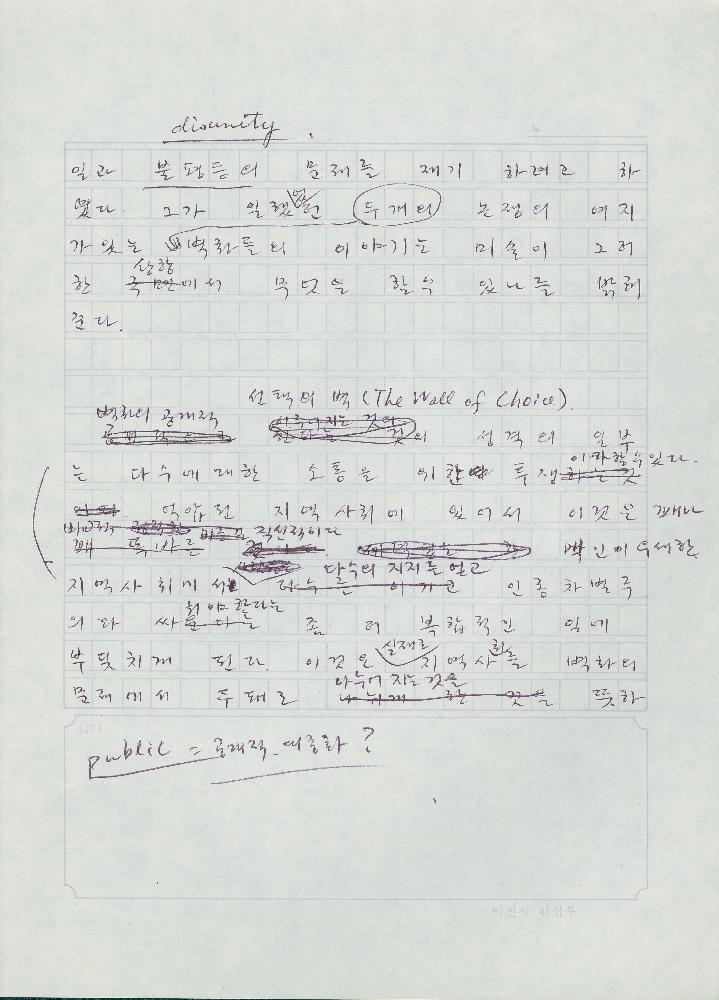 disunity
일과 불평등의 문제를 제기 하려고 하
였다. 그가 일했던 두개의 논쟁의 여지
가 있는 벽화들의 이야기는 미술이 그러
상황
한 국면에서 무엇을 할 수 있나를 밝혀
준다.
선택의 벽 (The Wall of Choice).
벽화의 공개적
것의 성격의 일부
이라 할 수 있다.
는 다수에 대한 소통을 위한 투쟁
억압된 지역사회에 있어서 이것은 꽤나
직선적이다
꽤 똑바른 백인이 우세한
다수의 지지를 얻고
지역사회에서 다수를 이기고 인종차별주
의와 싸운다는 좀 더 복합적인 일에
실제로
부딪치게 된다. 이것은 지역사회를 벽화의
나누어지는 것을
문제에서 두패로 나뉘게 한 것을 뜻하
public = 공개적. 대중화?
미진사 편집부